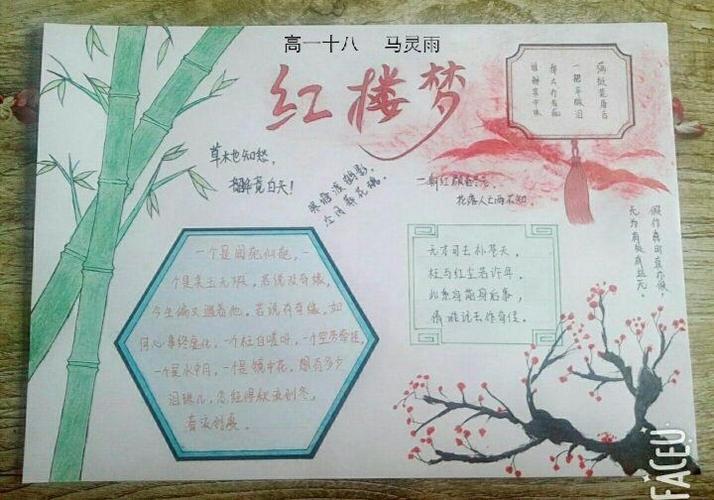 高一十八 马灵雨
红楼梦
满纸荒唐言
一把辛酸泪
都云作者痴
谁解其中味
草木也知愁，
韶华竟白头！
寒塘渡鹤影
冷月葬花魂
一朝红颜春尽，
花落人亡两不知。
假作真时真亦假，
无为有处有还无。
一个是阆苑仙葩，一
个是美玉无瑕，若说没奇缘，
今生偏又遇着他，若说有奇缘，如
何心事终虚化，一个枉自嗟呀，一个空劳牵挂，
一个是水中月，一个是镜中花，想有多少
泪珠儿，怎经得秋流到冬，
春流到夏。
无才可去补苍天，
枉与红尘若许年，
此系身前身后事，
倩谁记去作奇传。
FACEU